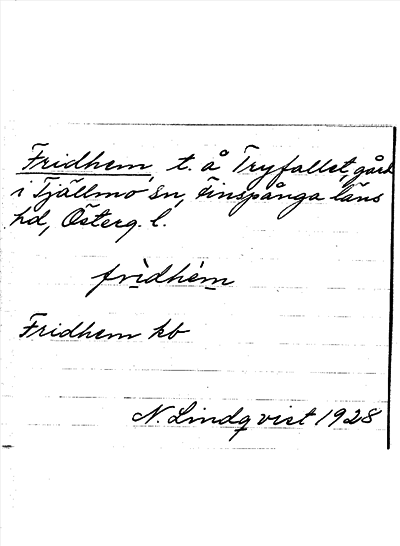 Fridhem, t. å Tryfallet, gård
i Tjällmo sn, Finspånga läns
hd, Österg. l.
frìdhèm
Fridhem kb
N. Lindqvist 1928